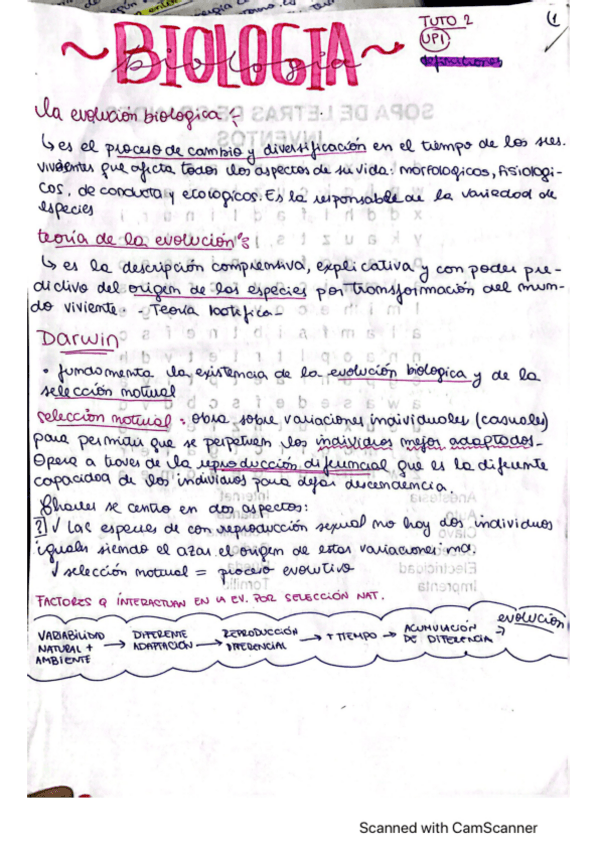 ~BIOLOGIA~
biología
TUTO 2
UP1
definiciones
1
la evolución biologica:
↳ es el proceso de cambio y diversificación en el tiempo de los seres.
vivientes que afecta todos los aspectos de su vida: morfologicos, fisiologi-
cos, de conducta y ecologicos. Es la responsable de la variedad de
especies
teoría de la evolución:
↳ es la descripción comprensiva, explicativa y con poder pre-
dictivo del origen de las especies por transformación del mun-
do viviente. - Teoria
Darwin
• fundamenta la existencia de la evolución biologica y de la
selección natural
selección natural: obra sobre variaciones individuales (casuales)
para permitir que se perpetuen los individuos mejor adaptados-
Opera a traves de la reproducción diferencial que es la diferente
capacidad de los individuos para dejar descendencia.
Charles se centro en dos aspectos:
√ Las especies de con reproducción sexual no hay dos individuos
iguales siendo el azar el origen de estas variaciones
√ selección natural = proceso evolutivo
FACTORES Q INTERACTUAN EN LA EV. POR SELECCIÓN NAT.
VARIABILIDAD NATURAL + AMBIENTE → DIFERENTE ADAPTACIÓN → REPRODUCCIÓN DIFERENCIAL → + TIEMPO → ACUMULACIÓN DE DIFERENCIA → evolución
Scanned with CamScanner